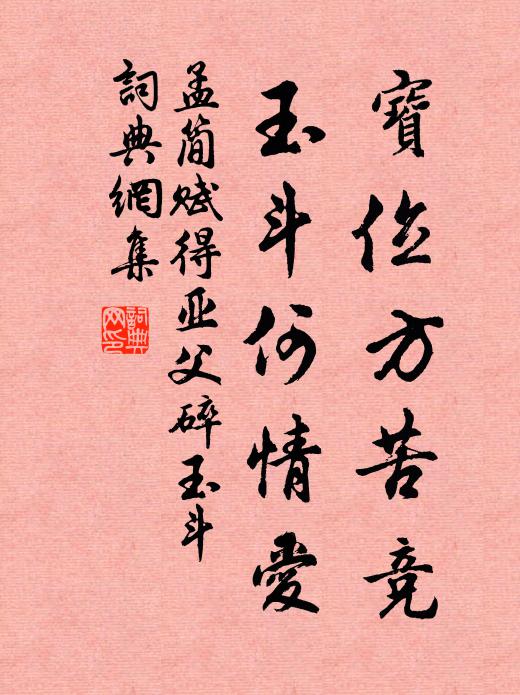 寶位方苦竞
玉斗何情愛
孟简赋得亚父碎玉斗
詞典網集
詞典网印